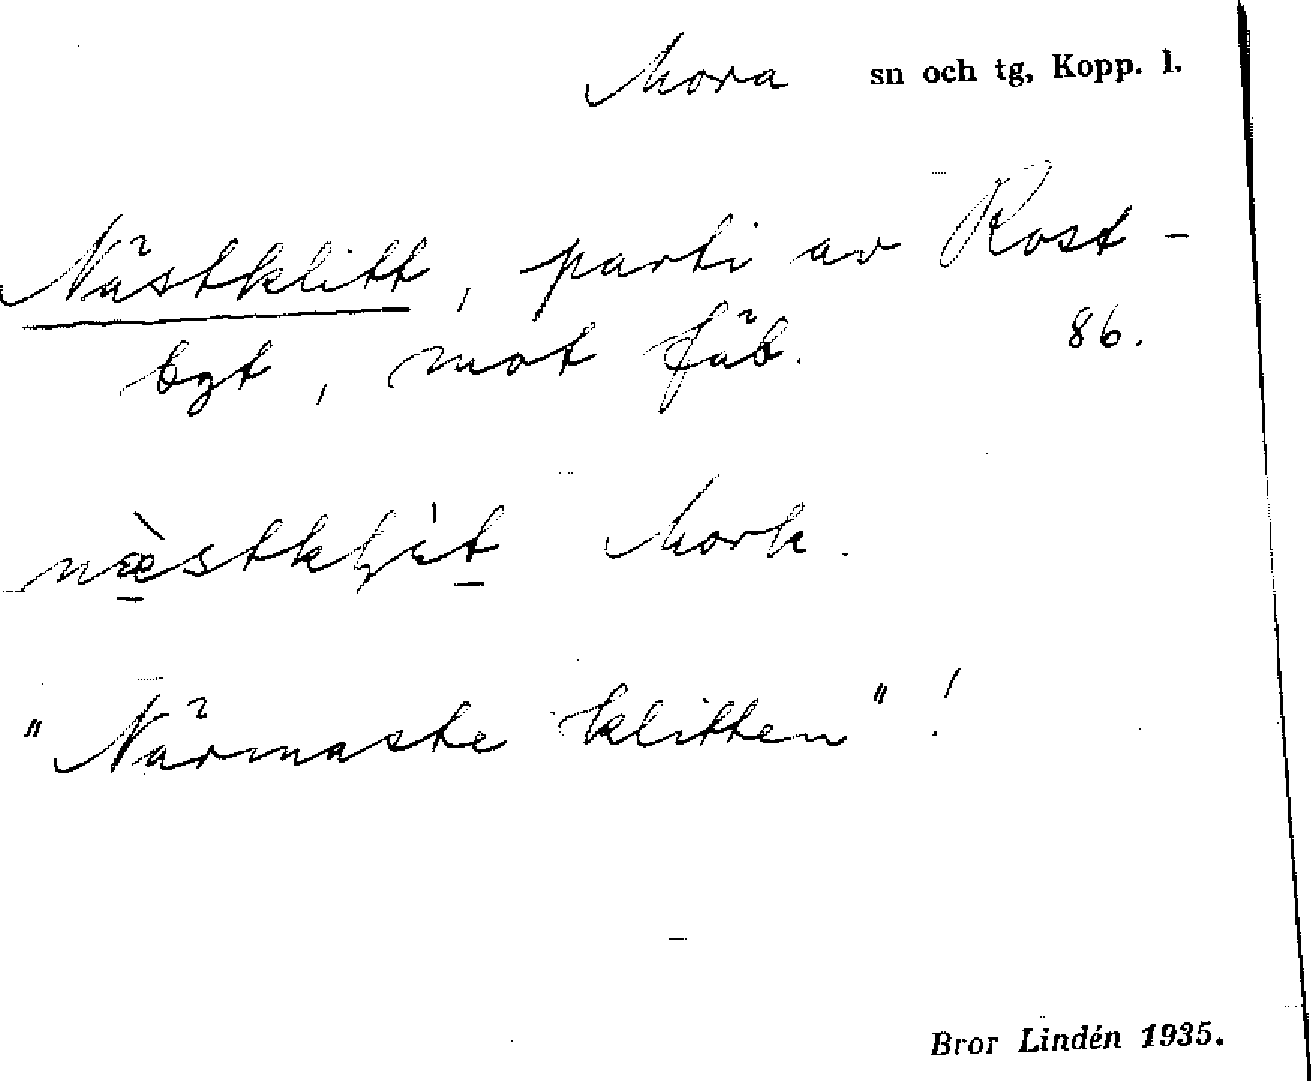 Mora sn och tg, Kopp. l.
Nästklitt, parti av Rost-
bgt, mot fäb. 86.
næ̀stkļit Mork.
"Närmaste klitten"!
Bror Lindén 1935.